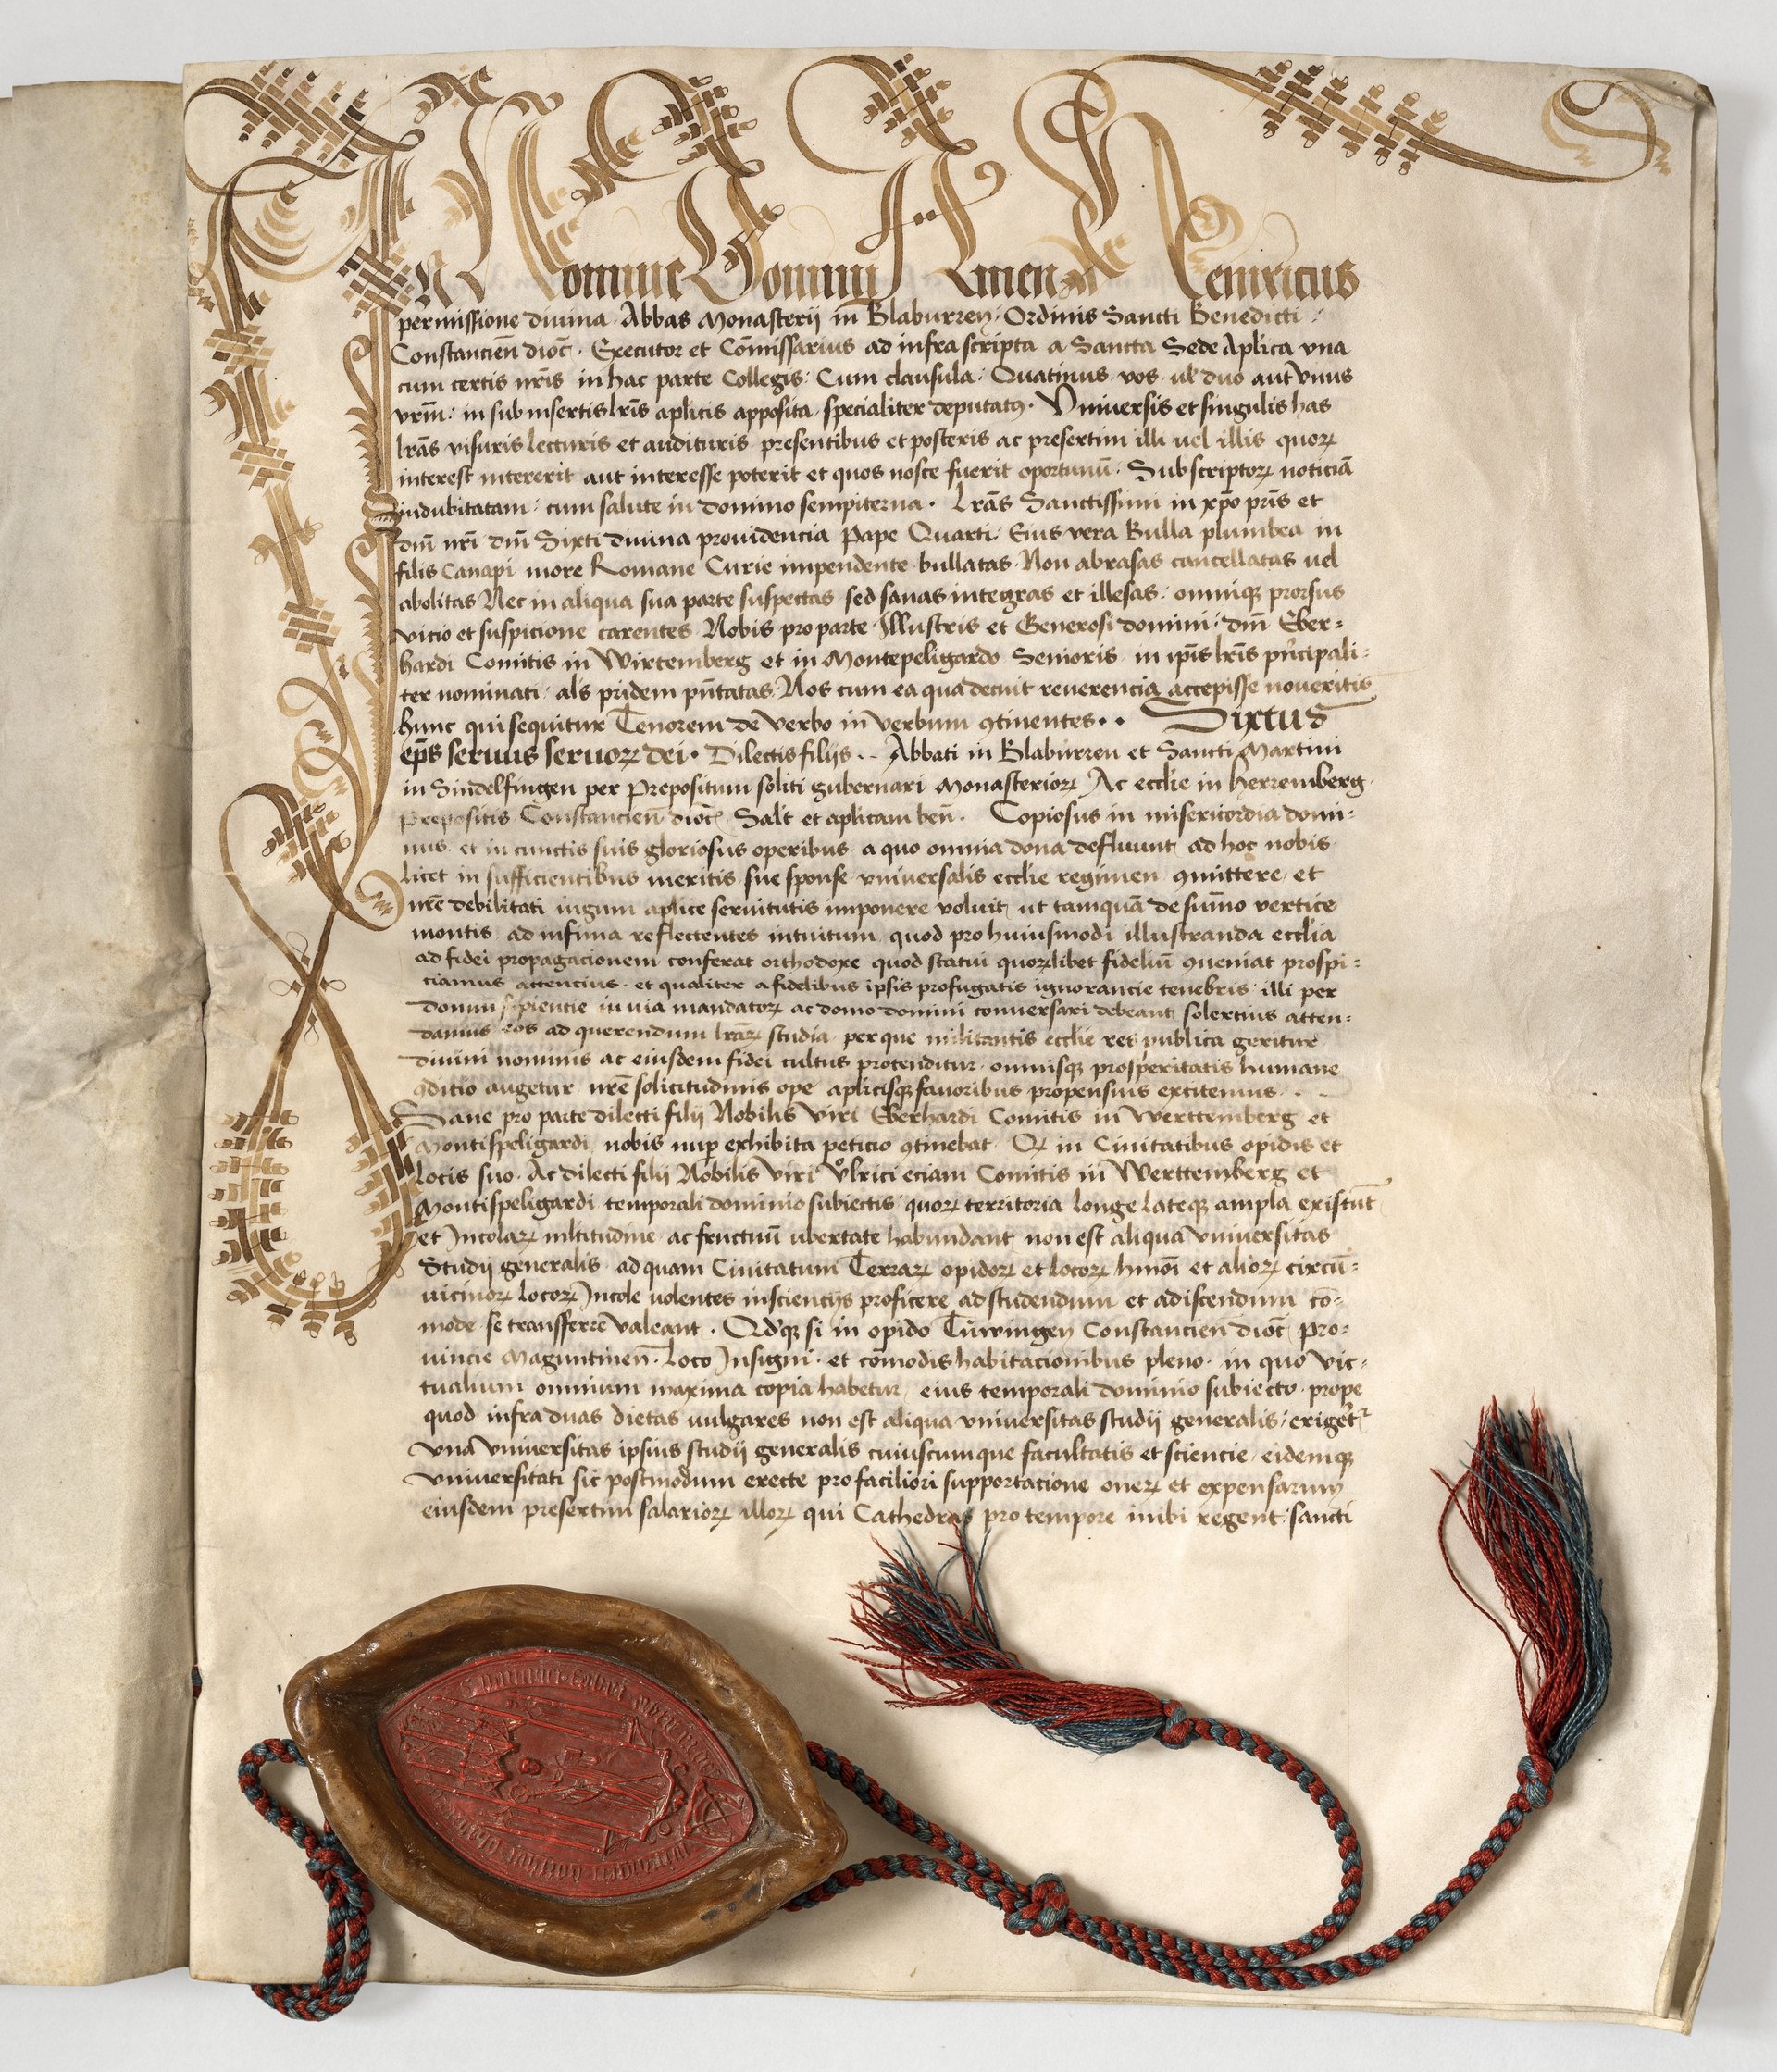 In Nomine Domini Amen Heinricus
permissione diuina Abbas Monasterij in Blaburren Ordinis Sancti Benedicti
Constancień dioc̄ Executor et Com̄issarius ad infra scripta a Sancta Sede Aplica vna
cum certis nr̄is in hac parte Collegis Cum clausula Quatinus vos vel duo aut vnus
vrm̄ in sub insertis lr̄is aplicis apposita specialiter deputatꝰ Vniuersis et singulis has
lrās visuris lecturis et audituris presentibus et posteris ac presertim illi uel illis quoꝝ
interest intererit aut interesse poterit et quos nosce fuerit oportunū Subscriptoꝝ noticiā
indubitatam cum salute in domino sempiterna Lrās Sanctissimi in xp̄o pr̄is et
dn̄i nr̄i dn̄i Sixti diuina prouidencia Pape Quarti Eius vera Bulla plumbea in
filis Canapi more Romane Curie impendente bullatas Non abrasas cancellatas uel
abolitas Nec in aliqua sua parte suspectas sed sanas integras et illesas omniqꝫ prorsus
vicio et suspicione carentes Nobis pro parte Illustris et Generosi domini dn̄i Eber=
hardi Comitis in Wirtemberg et in Montepeligardo Senioris in ip̄is lr̄is pn̄cipali=
ter nominati al's pridem pn̄tatas Nos cum ea qua decuit reuerencia accepisse noueritis
hunc qui sequitur Tenorem de verbo in verbum ꝯtinentes Sixtus
ep̄s seruus seruoꝝ dei Dilectis filijs Abbati in Blaburren et Sancti Martini
in Sindelfingen per Prepositum soliti gubernari Monasterioꝝ Ac eccl̄ie in Herremberg
Prepositis Constancień dioc̄ Salt̄ et aplicam ben̄ Copiosus in misericordia domi=
nus et in cunctis suis gloriosus operibus a quo omnia dona defluunt ad hoc nobis
licet in sufficientibus meritis sue sponse vniuersalis eccl̄ie regimen ꝯmittere et
nr̄e debilitati iugum aplice seruitutis imponere voluit ut tamquā de sum̄o vertice
montis ad infima reflectentes intuitum quod pro huiusmodi illustranda eccl̄ia
ad fidei propagacionem conferat orthodoxe quod statui quoꝝlibet fideliū ꝯueniat prospi=
ciamus attencius et qualiter a fidelibus ipsis profugatis ignorancie tenebris illi per
donum sapiencie in via mandatoꝝ ac domo domini conuersari debeant solertius atten=
damus eos ad querendum lrāꝝ studia per que militantis eccl̄ie res publica geritur
diuini nominis ac eiusdem fidei cultus protenditur omnisqꝫ prosperitatis humane
ꝯditio augetur nr̄e solicitudinis ope aplicisqꝫ fauoribus propensius excitemus
Sane pro parte dilecti filij Nobilis viri Eberhardi Comitis in Werttemberg et
Montispeligardi nobis nuꝑ exhibita peticio ꝯtinebat Qꝫ in Ciuitatibus opidis et
locis suo Ac dilecti filij Nobilis viri Vͦlrici eciam Comitis in Werttemberg et
Montispeligardi temporali dominio subiectis quoꝝ territoria longe lateqꝫ ampla existūt
et Incolaꝝ mltitudine ac fructuū ubertate habundant non est aliqua vniuersitas
Studij generalis ad quam Ciuitatum Terraꝝ opidoꝝ et locoꝝ hmōi et alioꝝ circū=
uicinoꝝ locoꝝ Incole uolentes in sciencijs proficere ad studendum et adiscendum cō=
mode se transferre valeant Qd'qꝫ si in opido Tüwingen Constancień dioc̄ Pro=
uincie Maguntineń Loco Insigni et com̄odis habitacionibus pleno in quo vic=
tualium omnium maxima copia habetur eius temporali dominio subiecto prope
quod infra duas dietas uulgares non est aliqua vniuersitas studij generalis erigeret᷑
vna vniuersitas ipsius studij generalis cuiuscumque facultatis et sciencie eidemqꝫ
vniuersitati sic postmodum erecte pro faciliori supportacione oneꝝ et expensarum
eiusdem presertim salarioꝝ illoꝝ qui Cathedras pro tempore inibi regent sancti